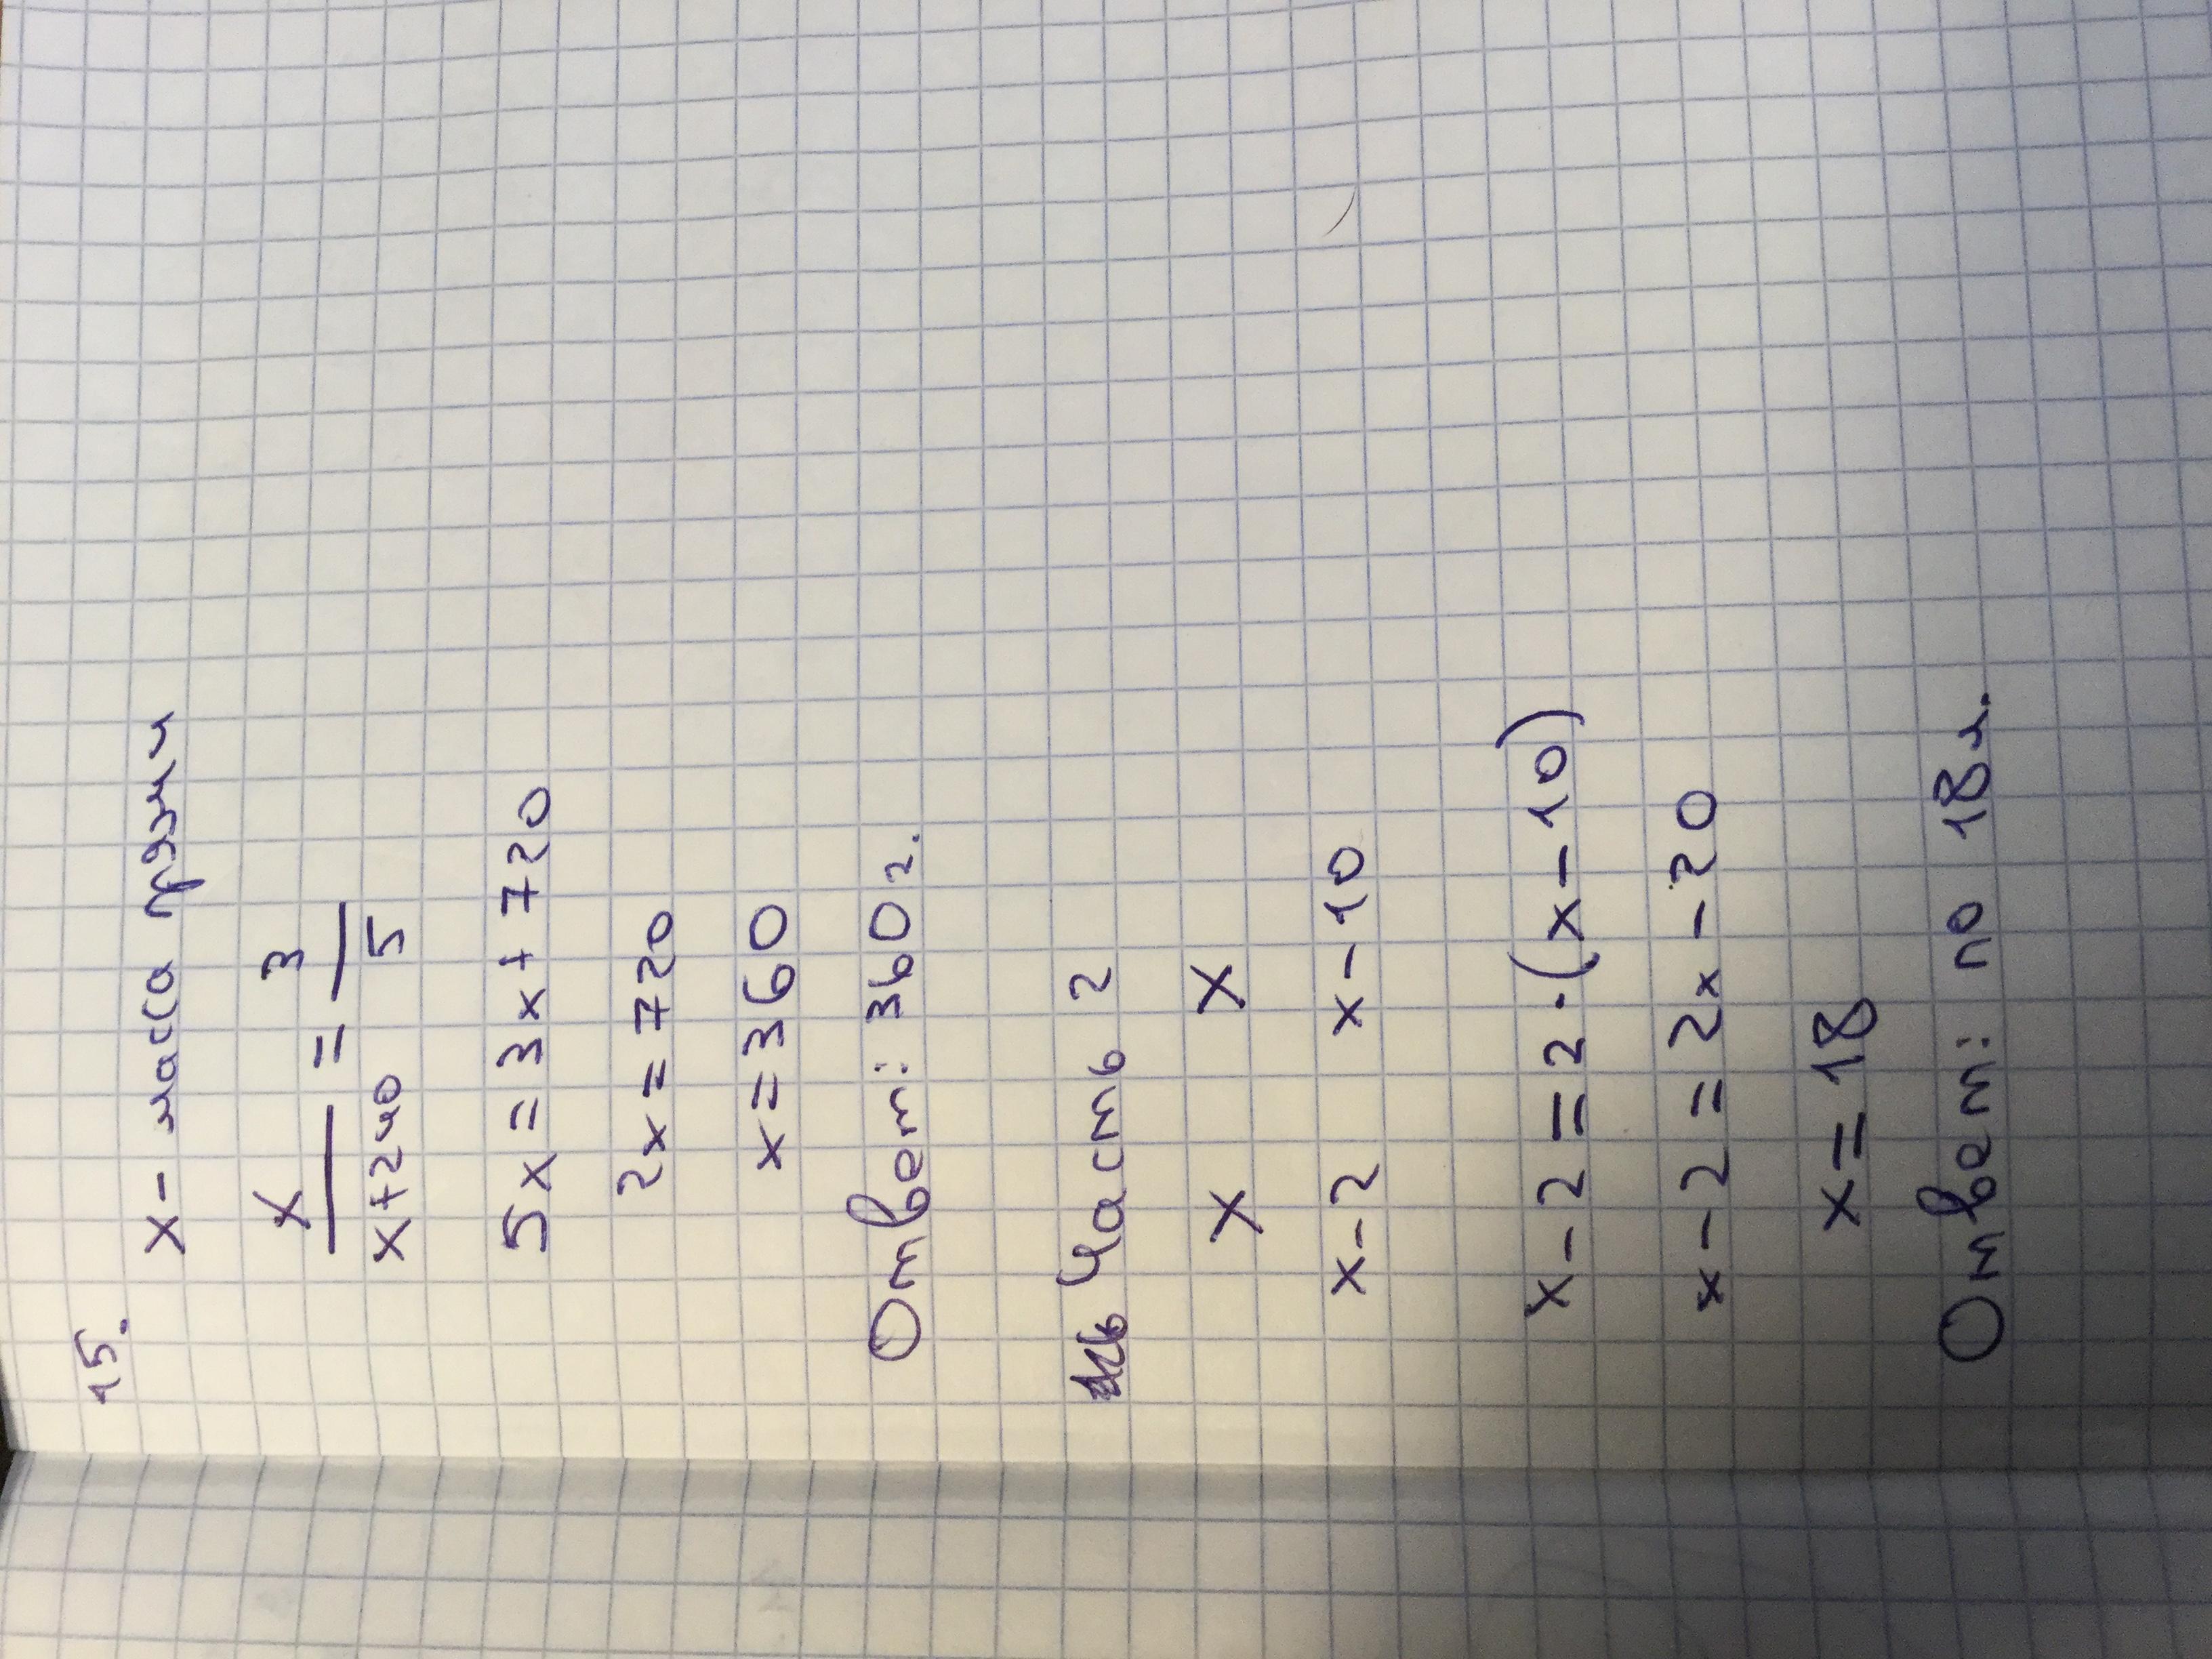 15.
x - масса пряжи
x 3
— = —
x+240 5
5x = 3x + 720
2x = 720
x = 360
Ответ: 360 г.
Часть 2
x x
x-2 x-10
x-2 = 2·(x-10)
x-2 = 2x-20
x = 18
Ответ: по 18 м.